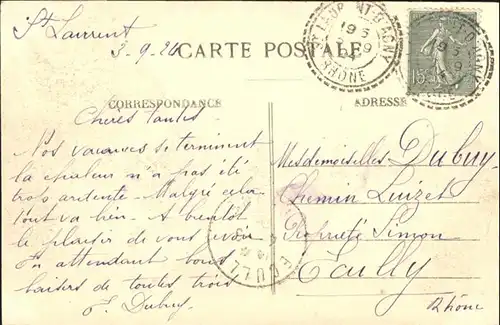 St Laurent
3-9-20
CARTE POSTALE
RHÔNE
15c
CORRESPONDANCE
ADRESSE
Chères toutes
Nos vacances se terminent
la chaleur n'a pas été
trop ardente. Malgré cela
tout va bien. A bientôt
le plaisir de vous revoir
En attendant bons
baisers de toutes trois
J. Dubuy
Mesdemoiselles Dubuy
Chemin Luizet
Propriété Simon
Ecully
Rhône